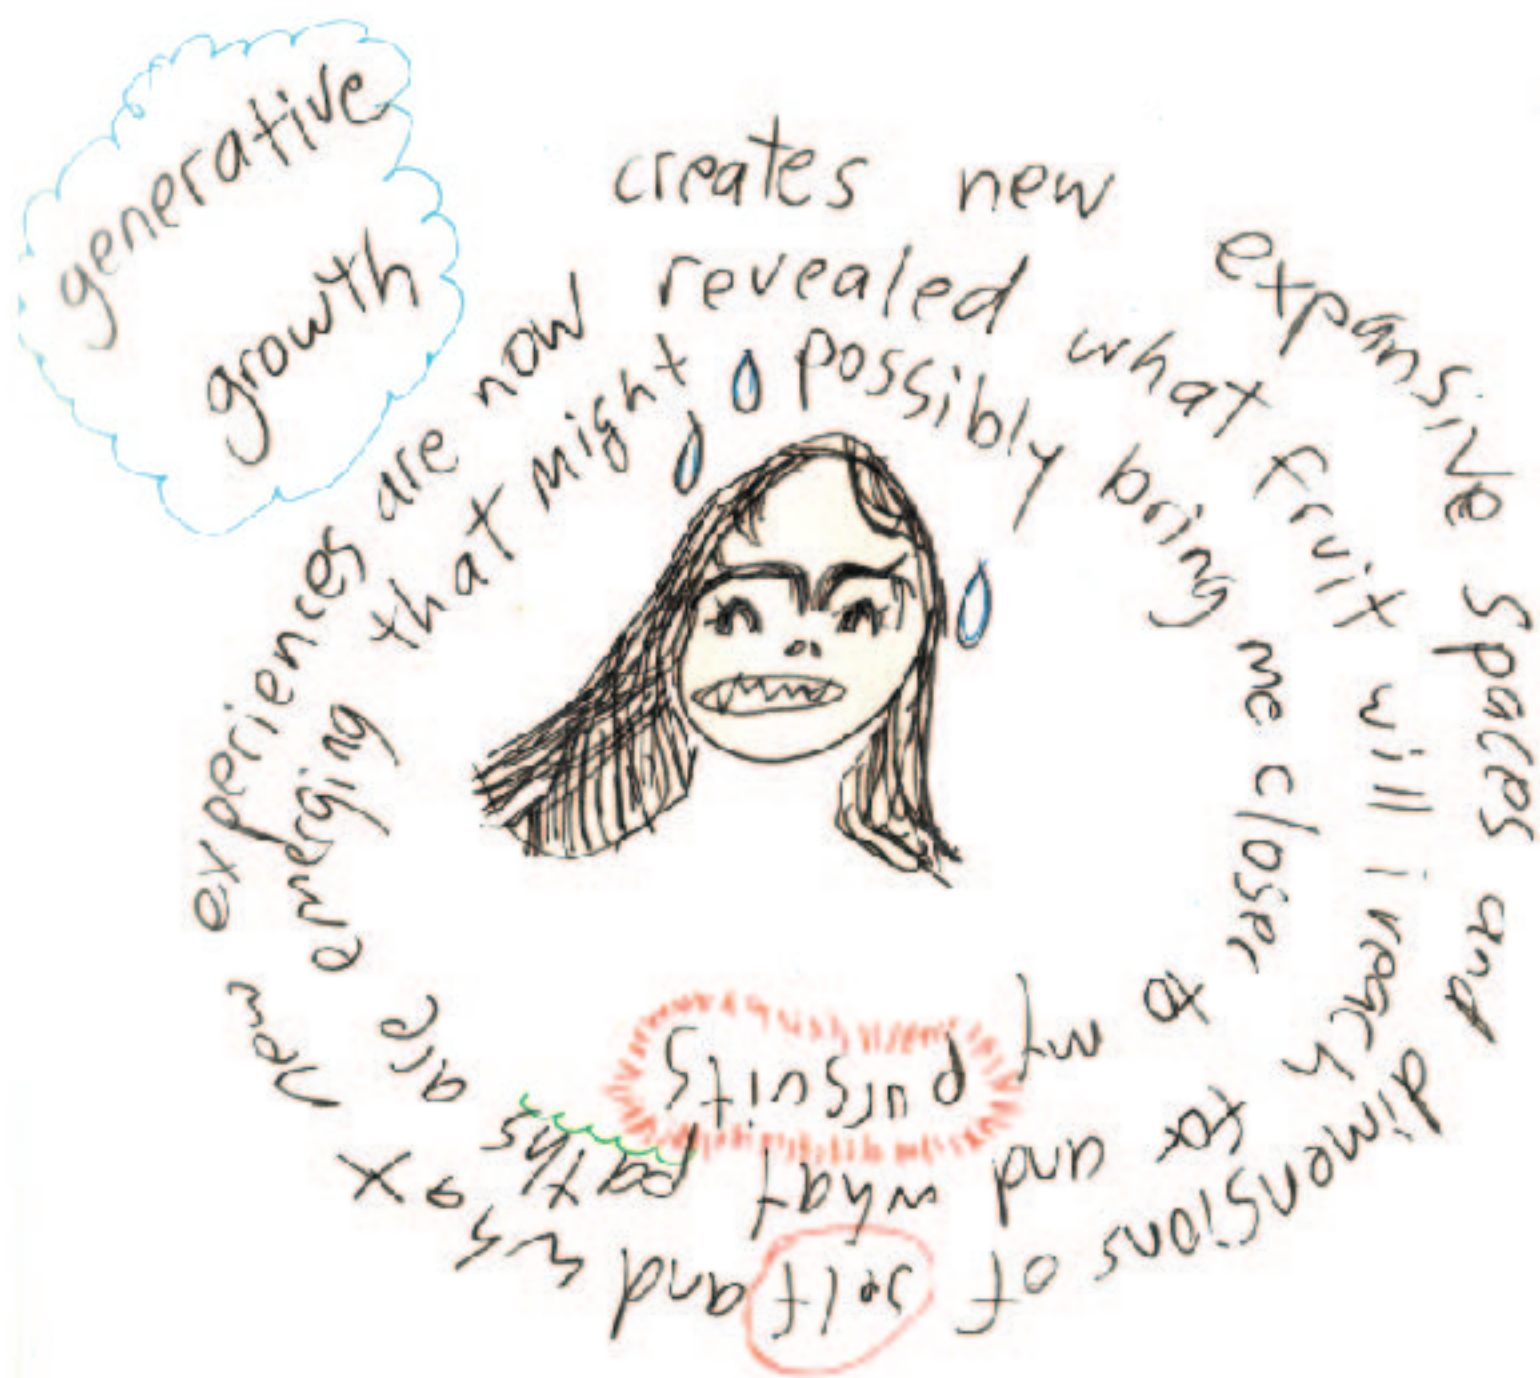 generative
growth
creates new expansive spaces and dimensions of self and what new experiences are now revealed what fruit will i reach for and what paths are emerging that might possibly bring me closer to my pursuits